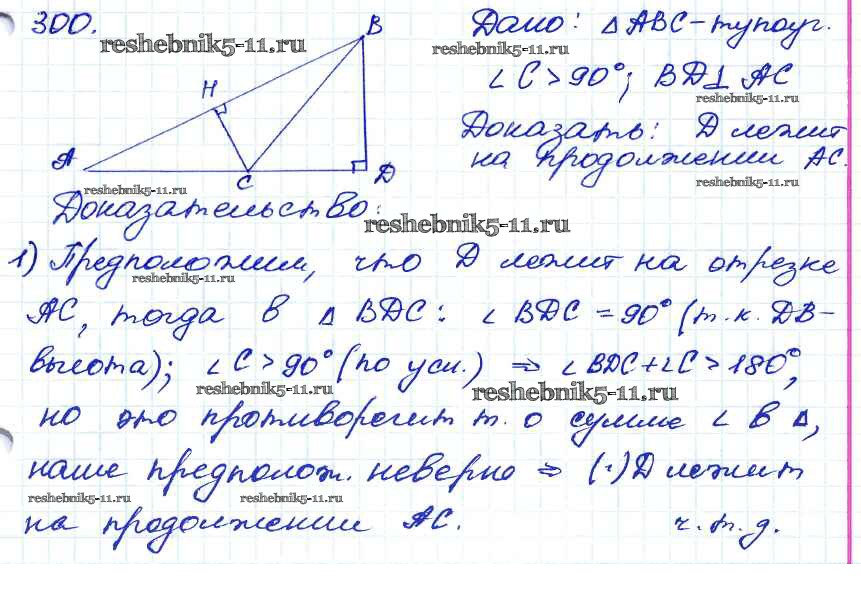 300.
reshebnik5-11.ru
B
H
A
C
D
reshebnik5-11.ru
Дано: △ABC - тупоуг.
reshebnik5-11.ru
∠C > 90°; BD⊥AC
reshebnik5-11.ru
Доказать: D лежит
на продолжении AC.
reshebnik5-11.ru
Доказательство:
reshebnik5-11.ru
1) Предположим, что D лежит на отрезке
reshebnik5-11.ru
AC, тогда в △ BDC: ∠BDC = 90° (т.к. DB-
высота); ∠C > 90° (по усл.) ⇒ ∠BDC+∠C > 180°,
reshebnik5-11.ru
reshebnik5-11.ru
но это противоречит т. о сумме ∠ в △,
наше предполож. неверно ⇒ (·) D лежит
reshebnik5-11.ru
reshebnik5-11.ru
на продолжении AC. ч.т.д.